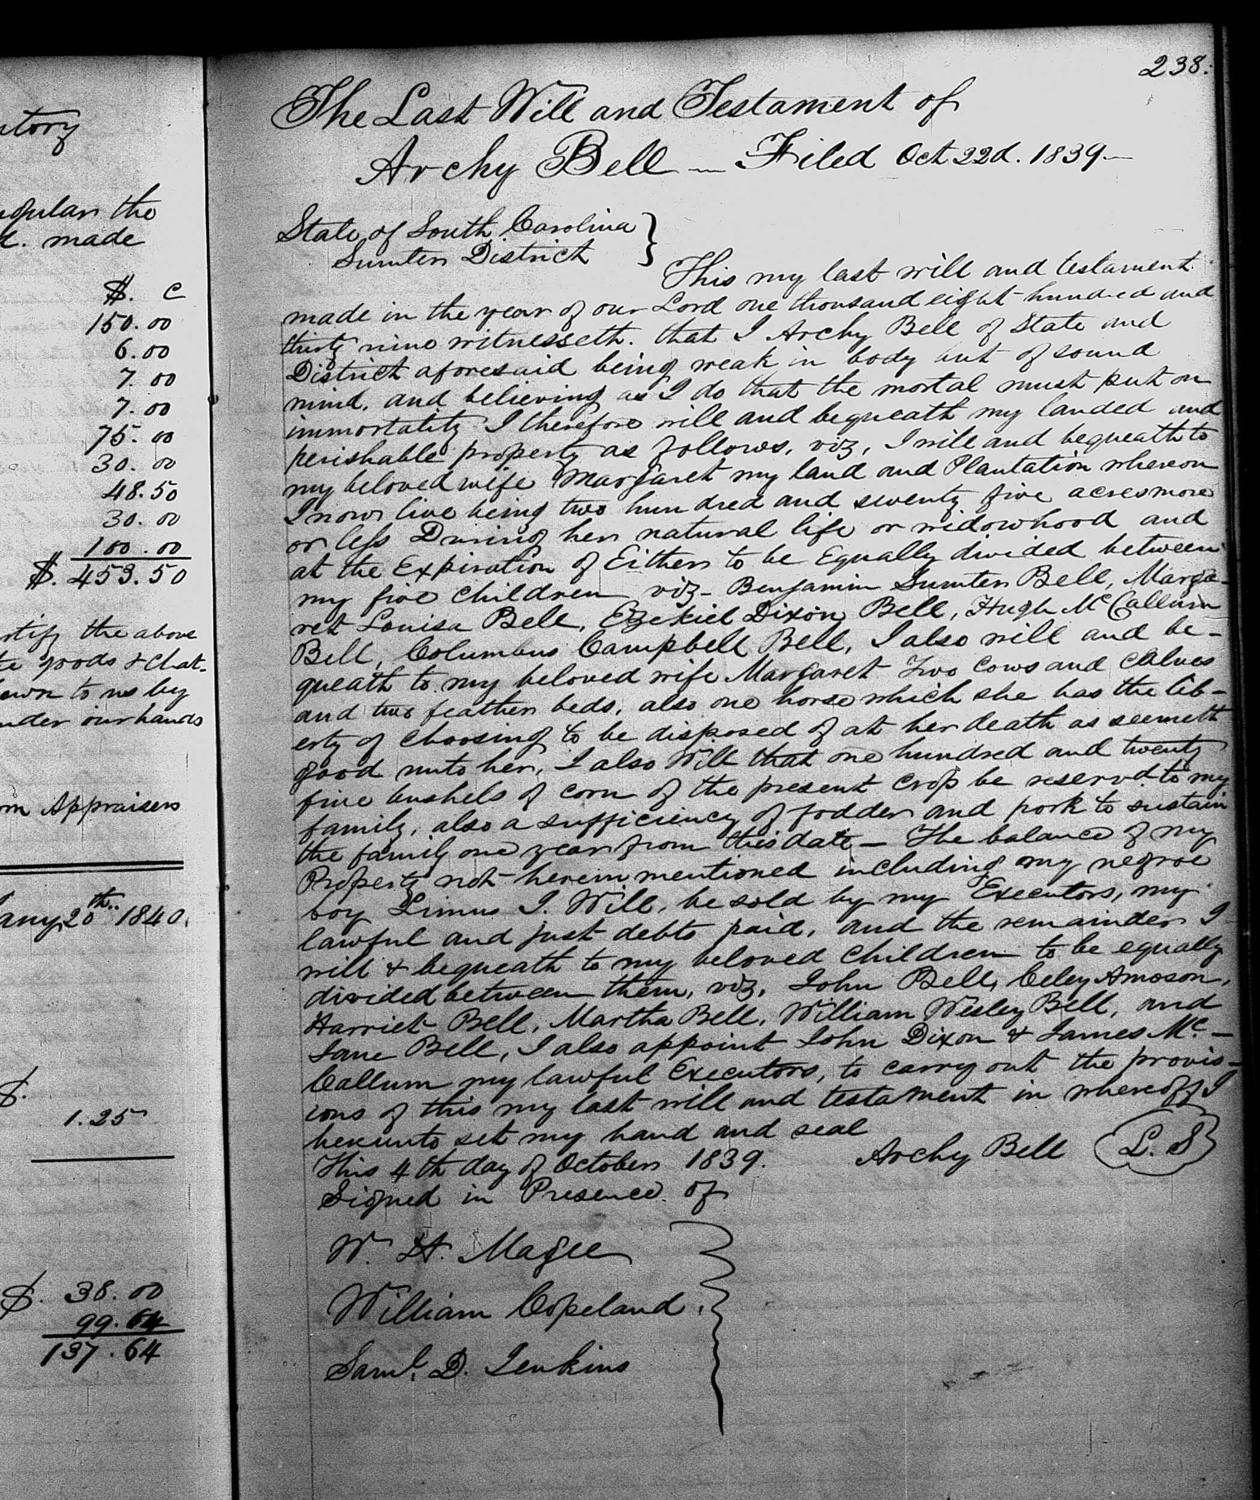 238.
The Last Will and Testament of
Archy Bell — Filed Oct 22d. 1839.—
State of South Carolina
Sumter District
This my last will and testament
made in the year of our Lord one thousand eight hundred and
thirty nine witnesseth. that I Archy Bell of State and
District aforesaid being weak in body but of sound
mind, and believing as I do that the mortal must put on
immortality I therefore will and bequeath my landed and
perishable property as follows, viz, I will and bequeath to
my beloved wife Margaret my land and Plantation whereon
I now live being two hundred and seventy five acres more
or less During her natural life or widowhood and
at the Expiration of Either to be Equally divided between
my five children viz- Benjamin Sumter Bell, Marga-
ret Louisa Bell, Ezekiel Dixon Bell, Hugh McCallum
Bell, Columbus Campbell Bell, I also will and be-
queath to my beloved wife Margaret Two Cows and Calves
and two feather beds, also one horse which she has the lib-
erty of choosing to be disposed of at her death as seemeth
good unto her, I also Will that one hundred and twenty
five bushels of corn of the present crop be reserved to my
family, also a sufficiency of fodder and pork to sustain
the family one year from this date — The balance of my
Property not herein mentioned including my negroe
boy Limus I. Will, be sold by my Executors, my
lawful and just debts paid, and the remainder I
will & bequeath to my beloved children to be equally
divided between them, viz, John Bell, Celey Amoson,
Harriet Bell, Martha Bell, William Wesley Bell, and
Jane Bell, I also appoint John Dixon & James Mc-
Callum my lawful Executors, to carry out the provis-
ions of this my last will and testament in whereoff I
hereunto set my hand and seal
This 4th day of October 1839. Archy Bell L. S
Signed in Presence of
W. H. Magee
William Copeland.
Saml. D. Jenkins
ntory
the
d. made
$. c
150.00
6.00
7.00
7.00
75.00
30.00
48.50
30.00
100.00
$.453.50
rtify the above
goods & chat-
to us by
under our hands
Appraisers
20th.. 1840.
$.
1.25
$. 38.00
99.64
137.64